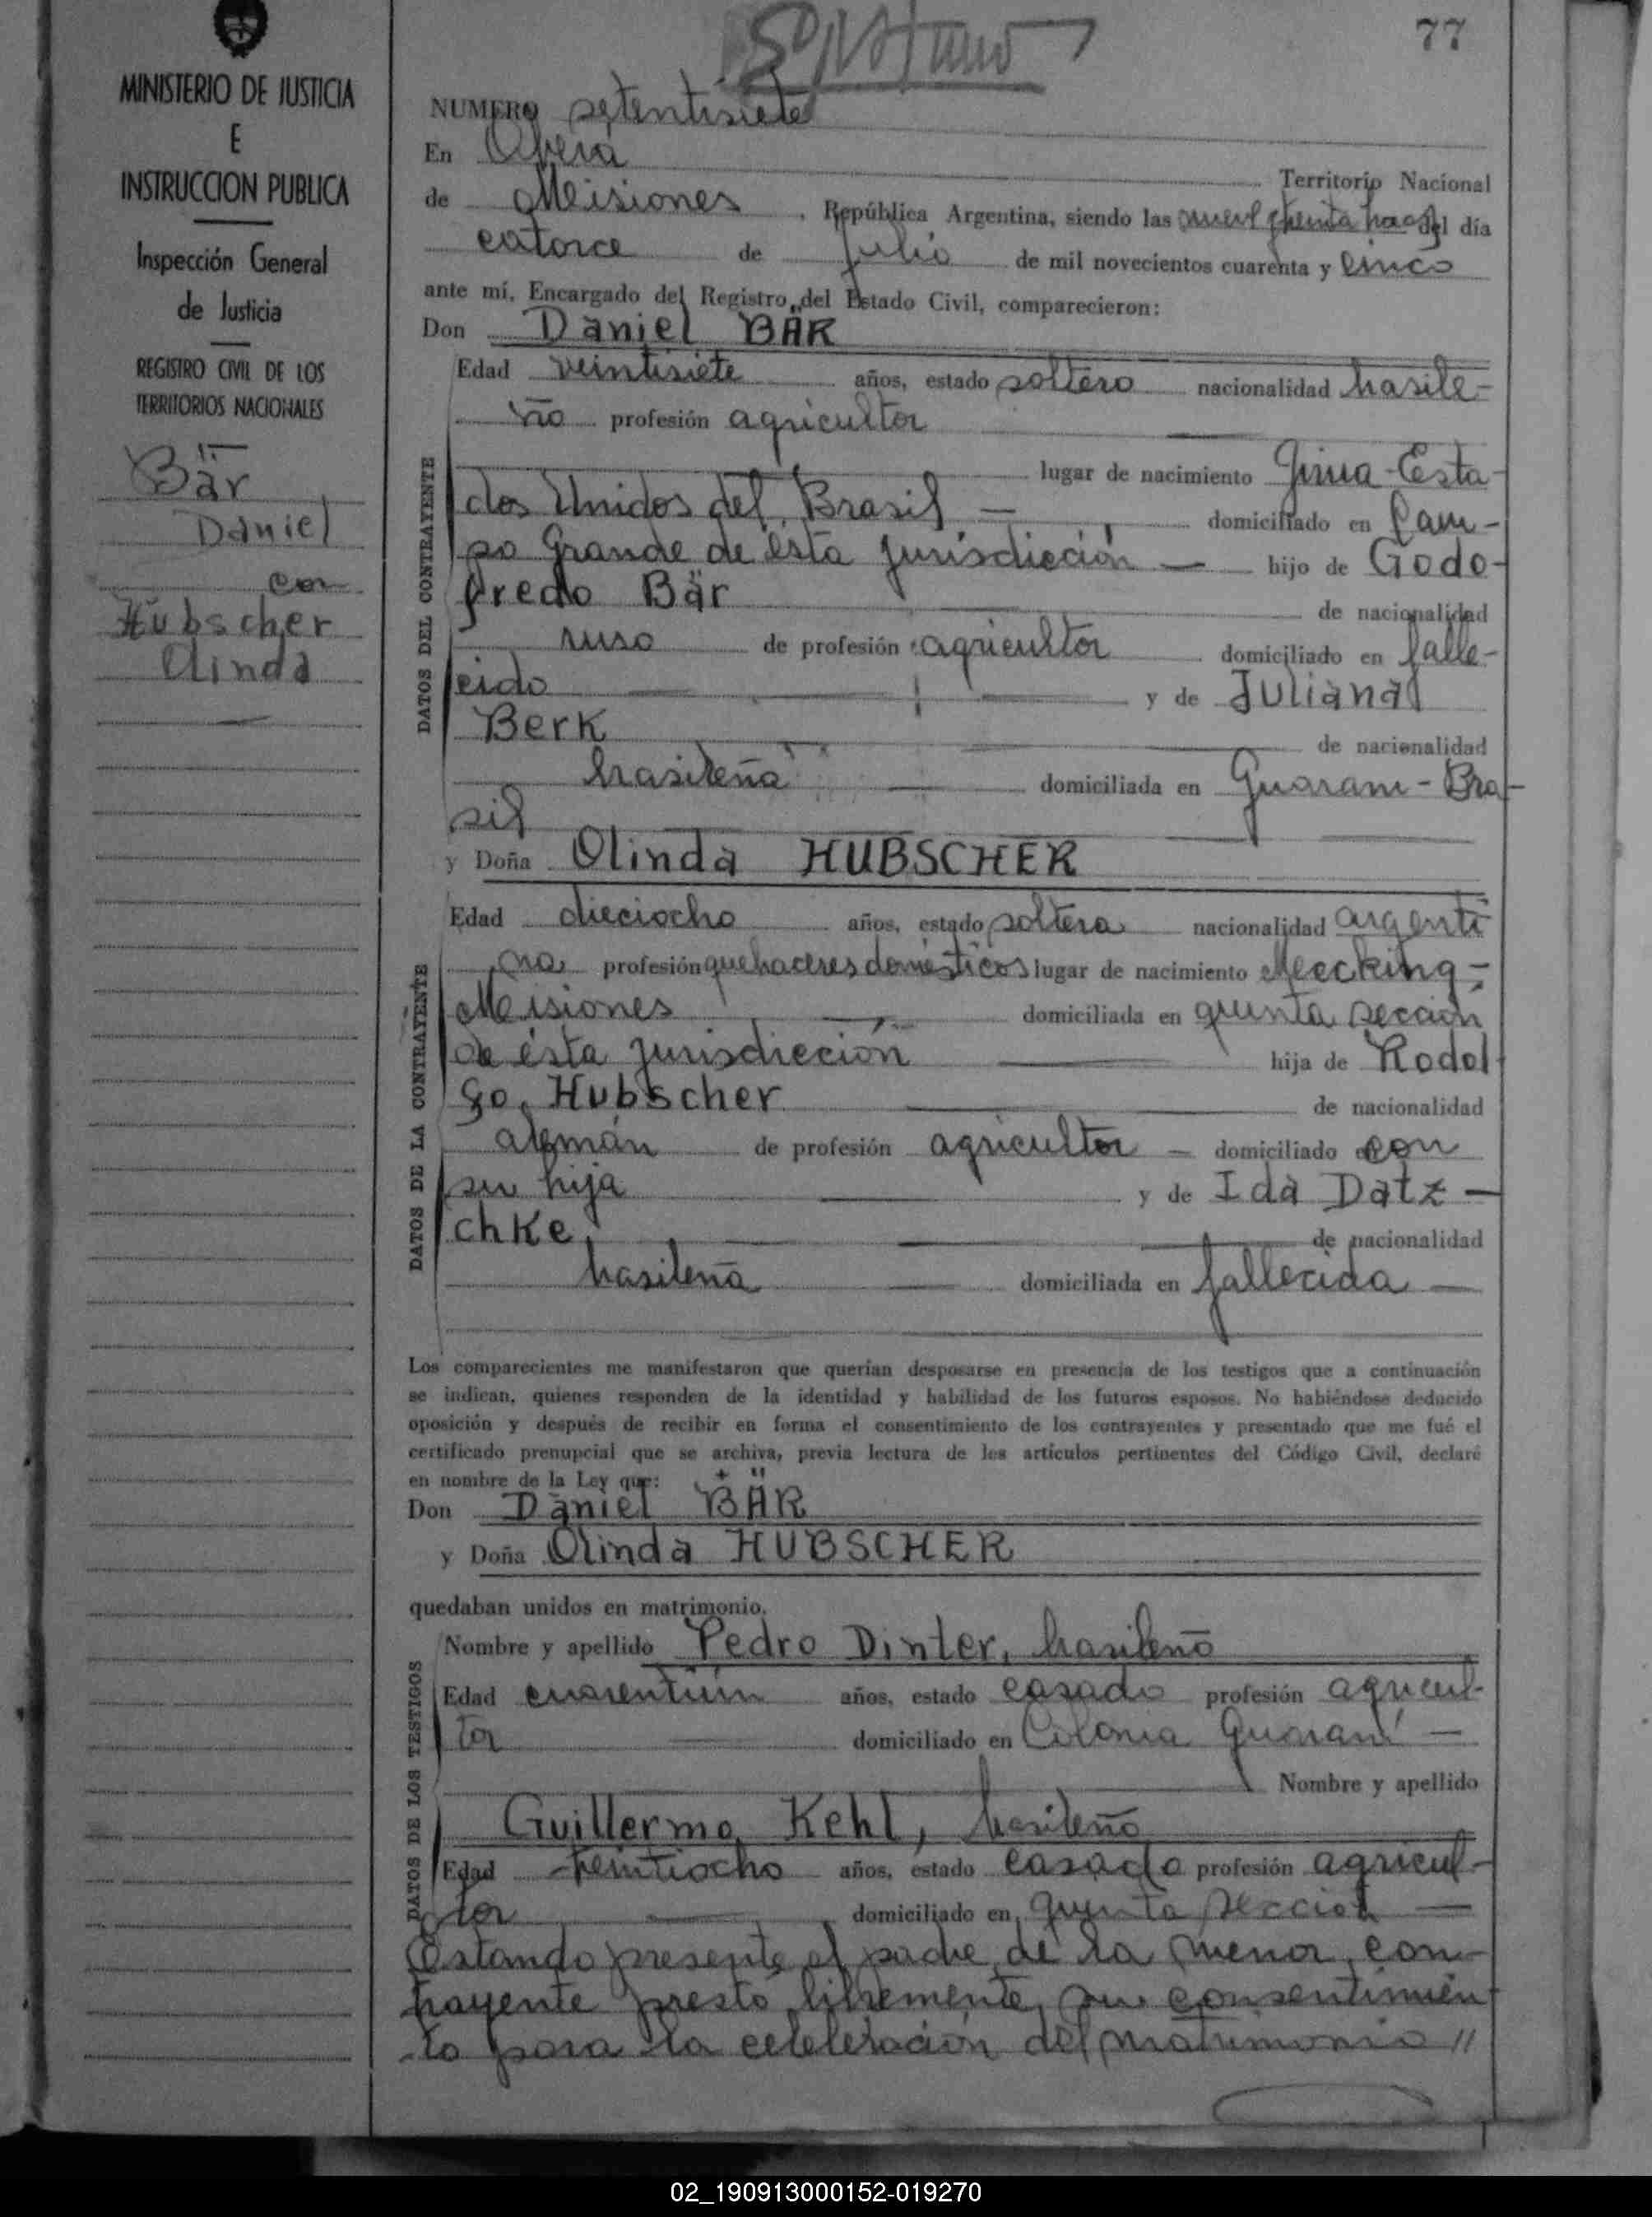 77
MINISTERIO DE JUSTICIA
E
INSTRUCCION PUBLICA
Inspección General
de Justicia
REGISTRO CIVIL DE LOS
TERRITORIOS NACIONALES
Bär
Daniel
con
Hubscher
Olinda
NUMERO setentisiete
En Oberá
Territorio Nacional
de Misiones, República Argentina, siendo las nueve y treinta horas del día
catorce de julio de mil novecientos cuarenta y cinco
ante mí, Encargado del Registro del Estado Civil, comparecieron:
Don Daniel BÄR
DATOS DEL CONTRAYENTE
Edad veintisiete años, estado soltero nacionalidad brasile-
ño profesión agricultor
lugar de nacimiento Esta-
dos Unidos del Brasil — domiciliado en Cam-
po Grande de ésta jurisdicción — hijo de Godo-
fredo Bär de nacionalidad
ruso de profesión agricultor domiciliado en falle-
cido — y de Juliana
Berk de nacionalidad
brasileña domiciliada en Guarani - Bra-
sil
y Doña Olinda HUBSCHER
DATOS DE LA CONTRAYENTE
Edad dieciocho años, estado soltera nacionalidad argenti
na profesión quehaceres domésticos lugar de nacimiento Mecking -
Misiones domiciliada en quinta sección
de ésta jurisdicción hija de Rodol
fo Hubscher de nacionalidad
alemán de profesión agricultor — domiciliado en con
su hija y de Ida Datz —
chke de nacionalidad
brasileña domiciliada en fallecida —
Los comparecientes me manifestaron que querían desposarse en presencia de los testigos que a continuación
se indican, quienes responden de la identidad y habilidad de los futuros esposos. No habiéndose deducido
oposición y después de recibir en forma el consentimiento de los contrayentes y presentado que me fué el
certificado prenupcial que se archiva, previa lectura de los artículos pertinentes del Código Civil, declaré
en nombre de la Ley que:
Don Daniel BÄR
y Doña Olinda HUBSCHER
quedaban unidos en matrimonio.
DATOS DE LOS TESTIGOS
Nombre y apellido Pedro Dinter, brasileño
Edad cuarentiún años, estado casado profesión agricul-
tor domiciliado en Colonia Guaraní —
Nombre y apellido
Guillermo Kehl, brasileño
Edad treintiocho años, estado casado profesión agricul-
tor domiciliado en quinta sección —
Estando presente el padre de la menor con-
trayente prestó libremente su consentimien
to para la celebración del matrimonio //
02_190913000152-019270